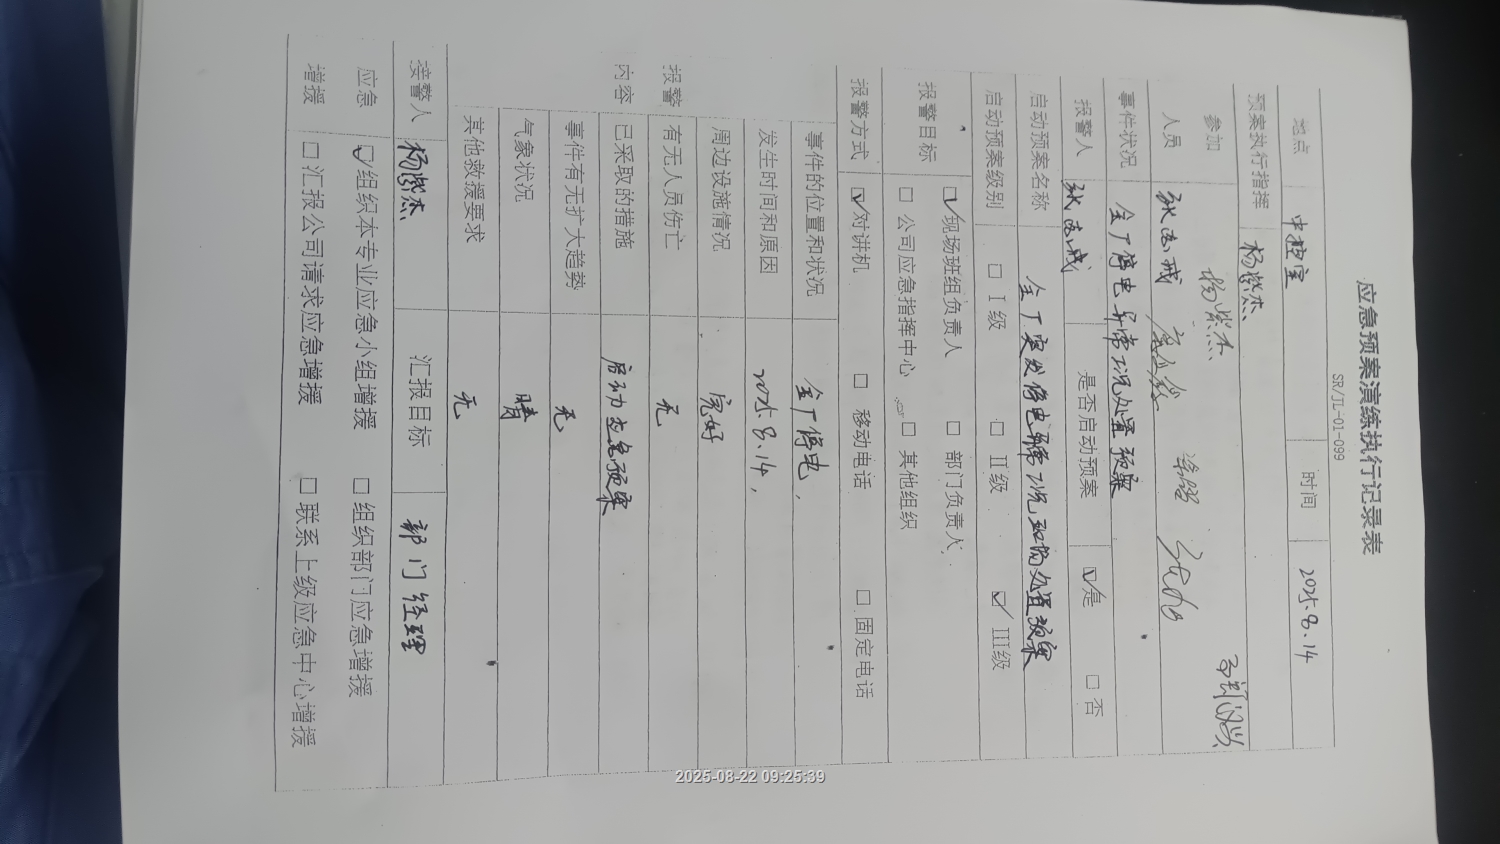 应急预案演练执行记录表
SR/JL-01-099
地点 中控室 时间 2025.8.14
预案执行指挥 杨紫杰
参加 杨紫杰
人员
事件状况 全厂停电异常状况处置预案
报警人 是否启动预案 ☑是 □否
启动预案名称 全厂突发停电异常状况现场处置预案
启动预案级别 □ I级 □ II级 ☑ III级
报警目标 ☑现场班组负责人 □ 部门负责人
□ 公司应急指挥中心 □ 其他组织
报警方式 ☑对讲机 □ 移动电话 □ 固定电话
报警
内容
事件的位置和状况 全厂停电,
发生时间和原因 2025.8.14,
周边设施情况 完好
有无人员伤亡 无
已采取的措施 启动应急预案
事件有无扩大趋势 无
气象状况 晴
其他救援要求 无
接警人 杨紫杰 汇报目标 部门经理
应急 ☑组织本专业应急小组增援 □ 组织部门应急增援
增援 □汇报公司请求应急增援 □ 联系上级应急中心增援
2025-08-22 09:25:39